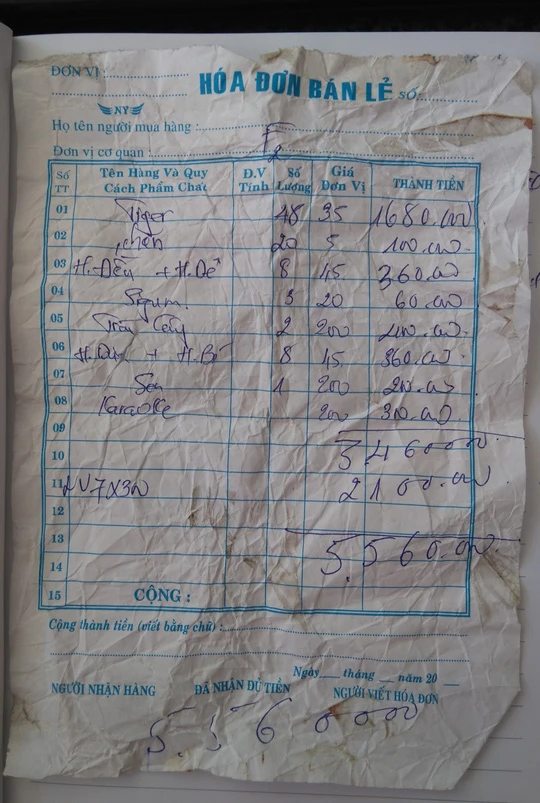 ĐƠN VỊ :
HÓA ĐƠN BÁN LẺ SỐ:
NY
Họ tên người mua hàng :
F2
Đơn vị cơ quan :
Số TT Tên Hàng Và Quy Cách Phẩm Chất Đ.V Tính Số Lượng Giá Đơn Vị THÀNH TIỀN
01 Tiger 48 35 1680.000
02 20 5 100.000
03 8 45 360.000
04 3 20 60.000
05 Trái Cây 2 200 400.000
06 8 45 360.000
07 1 200 200.000
08 Karaoke 300.000
09
10 3460000
11 7x300 2100.000
12
13
14 5.560.000
15 CỘNG :
Cộng thành tiền (viết bằng chữ) :
Ngày tháng năm 20
NGƯỜI NHẬN HÀNG ĐÃ NHẬN ĐỦ TIỀN NGƯỜI VIẾT HÓA ĐƠN
5.560000